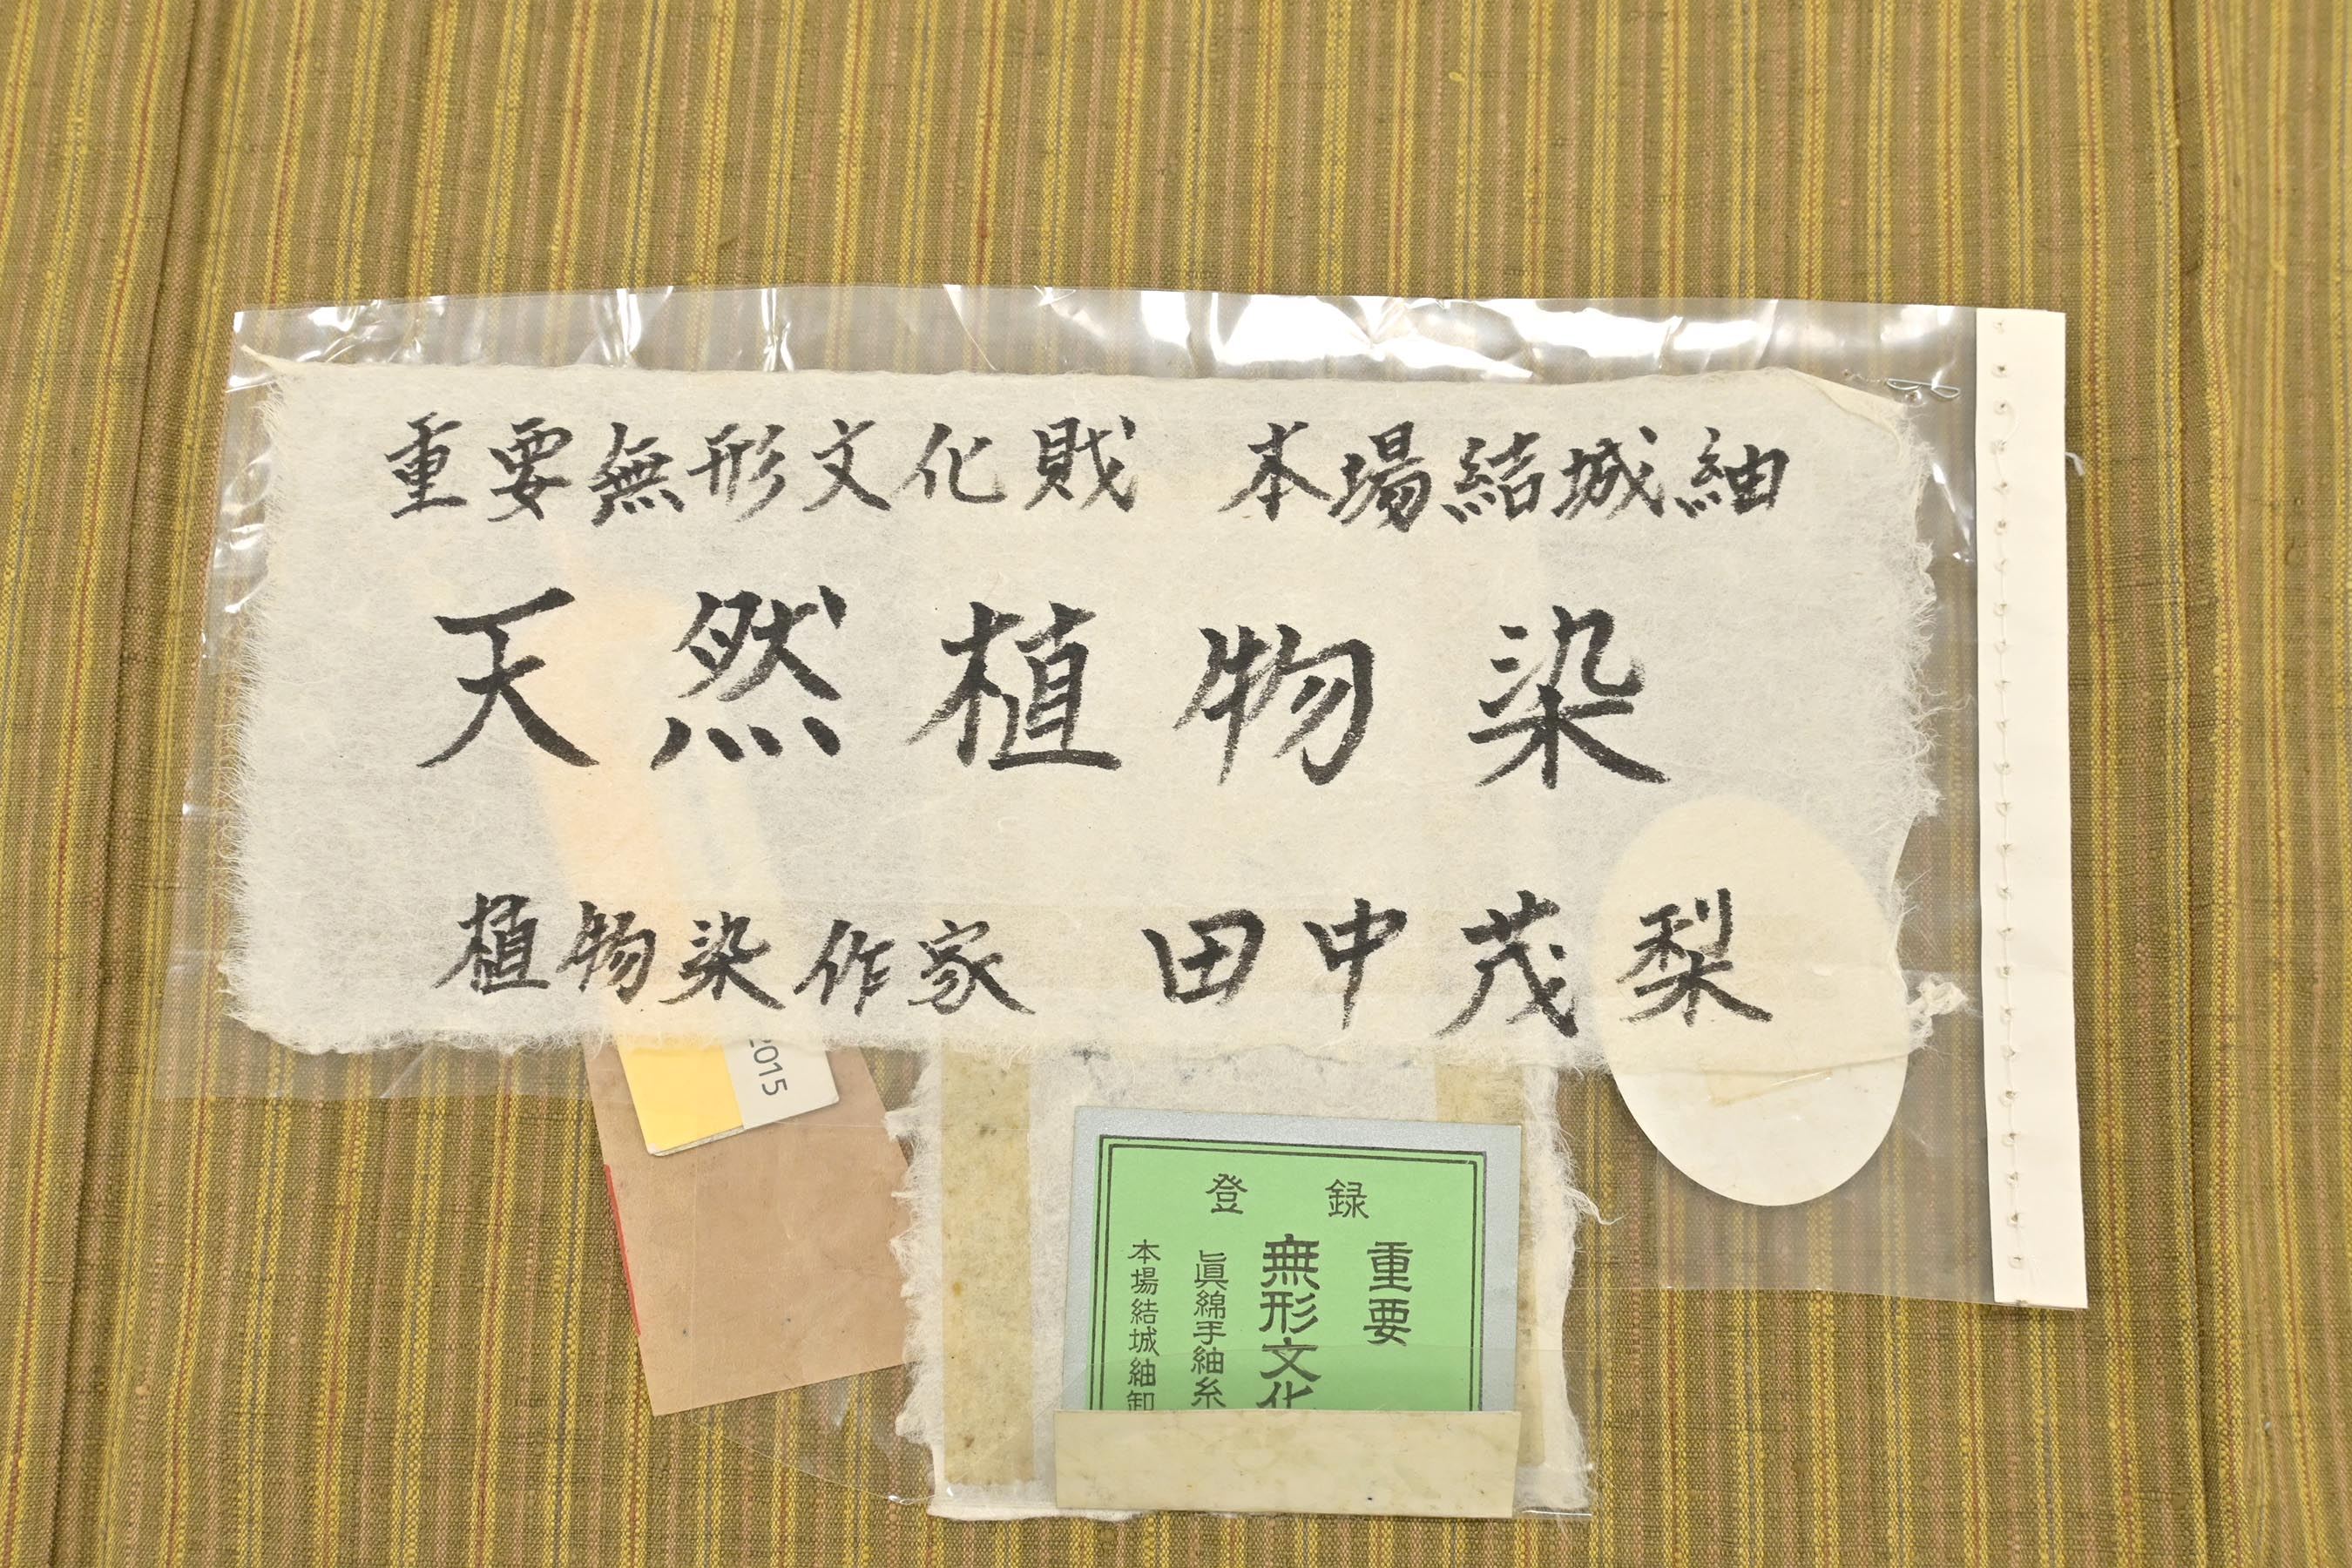 重要無形文化財 本場結城紬
天然植物染
植物染作家 田中茂梨
2015
登録
重要
無形文化
眞綿手紬糸
本場結城紬卸